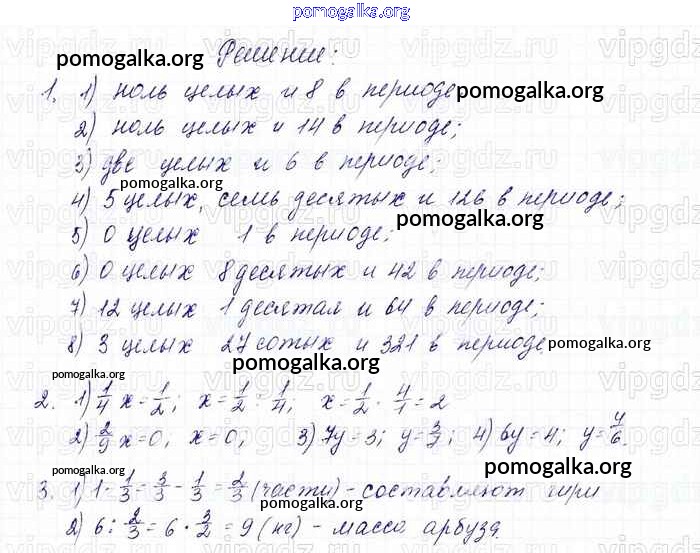 pomogalka.org
Решение:
pomogalka.org
1. 1) ноль целых и 8 в периоде pomogalka.org
2) ноль целых и 14 в периоде;
3) две целых и 6 в периоде;
pomogalka.org
4) 5 целых, семь десятых и 126 в периоде;
pomogalka.org
5) 0 целых 1 в периоде;
6) 0 целых 8 десятых и 42 в периоде;
pomogalka.org
7) 12 целых 1 десятая и 64 в периоде;
8) 3 целых 27 сотых и 321 в периоде pomogalka.org
pomogalka.org
pomogalka.org
2. 1) 1/4 x = 1/2; x = 1/2 : 1/4; x = 1/2 · 4/1 = 2
2) 2/9 x = 0; x = 0; 3) 7y = 3; y = 3/7; 4) 6y = 4; y = 4/6.
pomogalka.org pomogalka.org
3. 1) 1 - 1/3 = 3/3 - 1/3 = 2/3 (части) - составляют гири
pomogalka.org
2) 6 : 2/3 = 6 · 3/2 = 9 (кг) - масса арбуза.
pomogalka.org